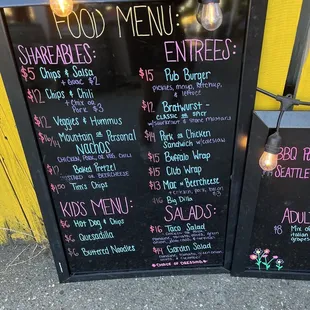 FOOD MENU:
SHAREABLES:
$5 Chips & Salsa
+ GUAC $2
$12 Chips & Chili
+ CHIX OR
PORK 3
$12 Veggies & Hummus
Mountain OR Personal
NACHOS
CHICKEN, PORK, OR VEG. CHILI
Baked Pretzel
W/ MUSTARD OR BEERCHEESE
Tim's Chips
KID'S MENU:
$6 Hot Dog & Chips
$6 Quesadilla
$6 Buttered Noodles
ENTREES:
$15 Pub Burger
pickles, mayo, ketchup,
& lettuce
$12 Bratwurst -
CLASSIC OR SPICE
W/ SAUERKRAUT & STONE MUSTARD
$14 Pork OR Chicken
Sandwich w/coleslaw
$15 Buffalo Wrap
$15 Club Wrap
$13 Mac & Beercheese
+ Chicken, pork,
Big Dilla
SALADS:
$16 Taco Salad
$14 Garden Salad
BBQ
SEATTLE
ADU
18 Mix of
Italian
grape